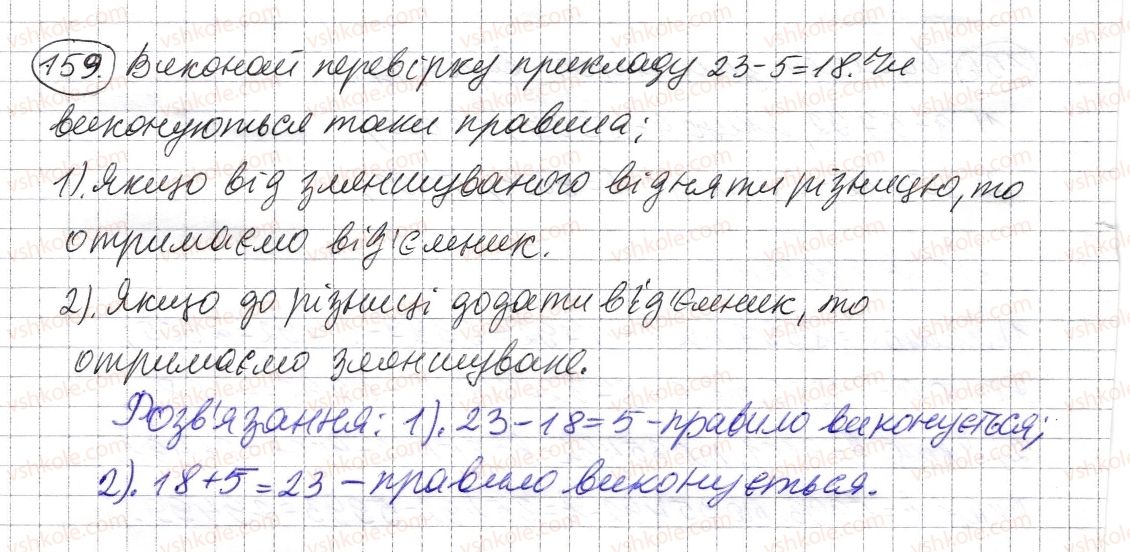 159. Виконай перевірку прикладу 23-5=18. Чи
виконуються таки правила;
1). Якщо від зменшуваного відняти різницю, то
отримаємо від'ємник.
2). Якщо до різниці додати від'ємник, то
отримаємо зменшуване.
Розв'язання: 1). 23-18=5 -правило виконується;
2). 18+5=23 - правило виконується.